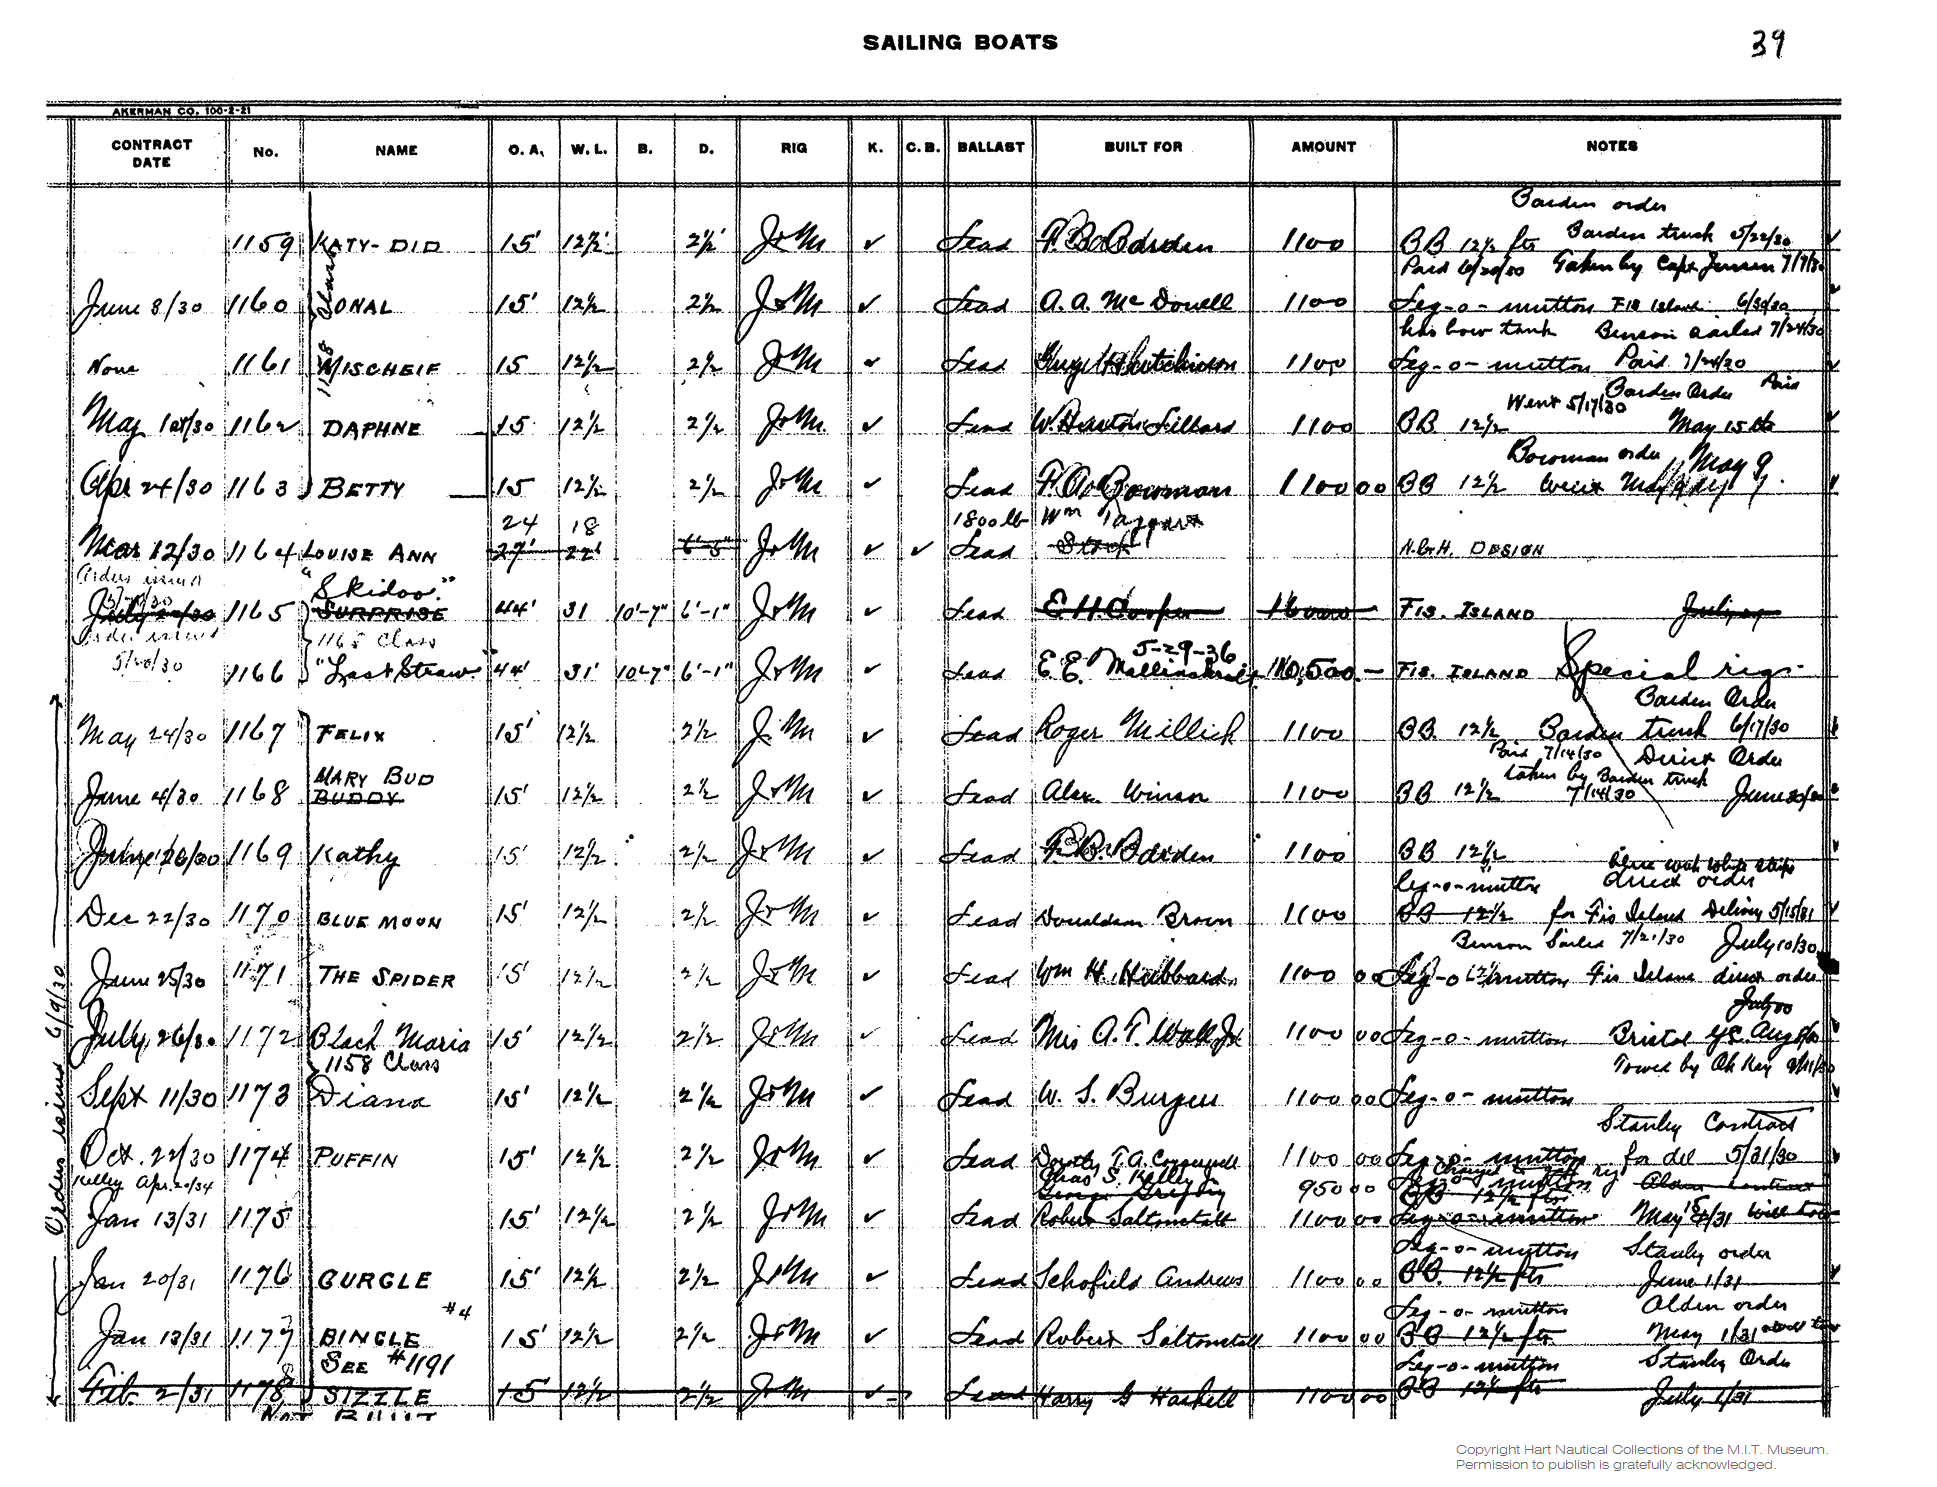 SAILING BOATS
39
AKERMAN CO. 100-2-21
CONTRACT DATE No. NAME O. A. W. L. B. D. RIG K. C. B. BALLAST BUILT FOR AMOUNT NOTES
Barden order
1159 KATY-DID 15' 12½' 2½' J & M ✓ Lead F. B. Barden 1100 BB 12½ ftr Barden truck 5/22/30 ✓
Paid 6/20/30 Taken by Capt Jensen 7/7/30
June 8/30 1160 SONAL 15' 12½ 2½ J & M ✓ Lead A. A. McDowell 1100 Leg-o-mutton FIS ISLAND 6/30/30
has bow tank Benson sailed 7/24/30
None 1161 MISCHEIF 15 12½ 2½ J & M ✓ Lead Hutchinson 1100 Leg-o-mutton Paid 7/24/30 ✓
Barden Order Paid
Went 5/17/30
May 1162 DAPHNE 15 12½ 2½ J & M ✓ Lead W. 1100 BB. 12½ May 15th ✓
Bowman order May 9
Apr 24/30 1163 BETTY 15 12½ 2½ J & M ✓ Lead F. A. Bowman 1100 00 BB 12½ May 9.
24 18 1800 lb Wm Taggart
Mar 12/30 1164 LOUISE ANN 27' 22' 6'-5" J & M ✓ ✓ Lead Stock N.G.H. DESIGN
Orders issued
"Skidoo."
July 1165 SURPRISE 44' 31 10'-7" 6'-1" J & M ✓ Lead E. H. Cooper FIS. ISLAND July
Order issued 1165 Class
5/20/30 5-29-36
1166 "Last Straw" 44' 31' 10'-7" 6'-1" J & M ✓ Lead E. E. 10,500.— FIS. ISLAND Special rig.
Barden Order
May 24/30 1167 FELIX 15' 12½ 2½ J & M ✓ Lead Roger Millick 1100 BB. 12½ Barden truck 6/17/30 ✓
Paid 7/14/30 Direct Order
MARY BUD taken by Barden truck
June 4/30 1168 BUDDY 15' 12½ 2½ J & M ✓ Lead Alex. Winsor 1100 BB 12½ 7/14/30 June
1169 Kathy 15' 12½ 2½ J & M ✓ Lead F. B. Barden 1100 BB 12½ ✓
Leg-o-mutton direct order
Dec 22/30 1170 BLUE MOON 15' 12½ 2½ J & M ✓ Lead Donaldson Brown 1100 BB 12½ for Fis Island Delivery 5/15/31 ✓
Benson Sailed 7/21/30 July 10/30
June 25/30 1171 THE SPIDER 15' 12½ 2½ J & M ✓ Lead Wm H. Hubbard 1100 00 Leg-o-mutton Fis Island direct order
July
July 26/30 1172 Black Maria 15' 12½ 2½ J & M ✓ Lead Mrs A. T. Wall Jr 1100 00 Leg-o-mutton Bristol Y.C. Aug ✓
1158 Class Towed by Oh Kay 9/11/30
Sept 11/30 1173 Diana 15' 12½ 2½ J & M ✓ Lead W. S. Burgess 1100 00 Leg-o-mutton
Stanley Contract
Oct. 22/30 1174 PUFFIN 15' 12½ 2½ J & M ✓ Lead Dorothy T. A. 1100 00 Leg-o-mutton for del 5/31/30 ✓
Kelley Apr. 20/34 Chas S. Kelley
950 00 BB 12½ ftr
Jan 13/31 1175 15' 12½ 2½ J & M ✓ Lead Robert Saltonstall 1100 00 Leg-o-mutton May
Leg-o-mutton Stanley order
Jan 20/31 1176 GURGLE 15' 12½ 2½ J & M ✓ Lead Schofield Andrews 1100 00 BB. 12½ ftr June 1/31 ✓
#4 Leg-o-mutton Alden order
Jan 13/31 1177 BINGLE 15' 12½ 2½ J & M ✓ Lead Robert Saltonstall 1100 00 BB 12½ ftr May 1/31
SEE #1191 Leg-o-mutton Stanley Order
Feb. 2/31 1178 SIZZLE 15' 12½ 2½ J & M ✓ Lead Harry G Haskell 1100 00 BB 12½ ftr July 1/31
NOT BUILT
Orders issued 6/9/30
Copyright Hart Nautical Collections of the M.I.T. Museum.
Permission to publish is gratefully acknowledged.